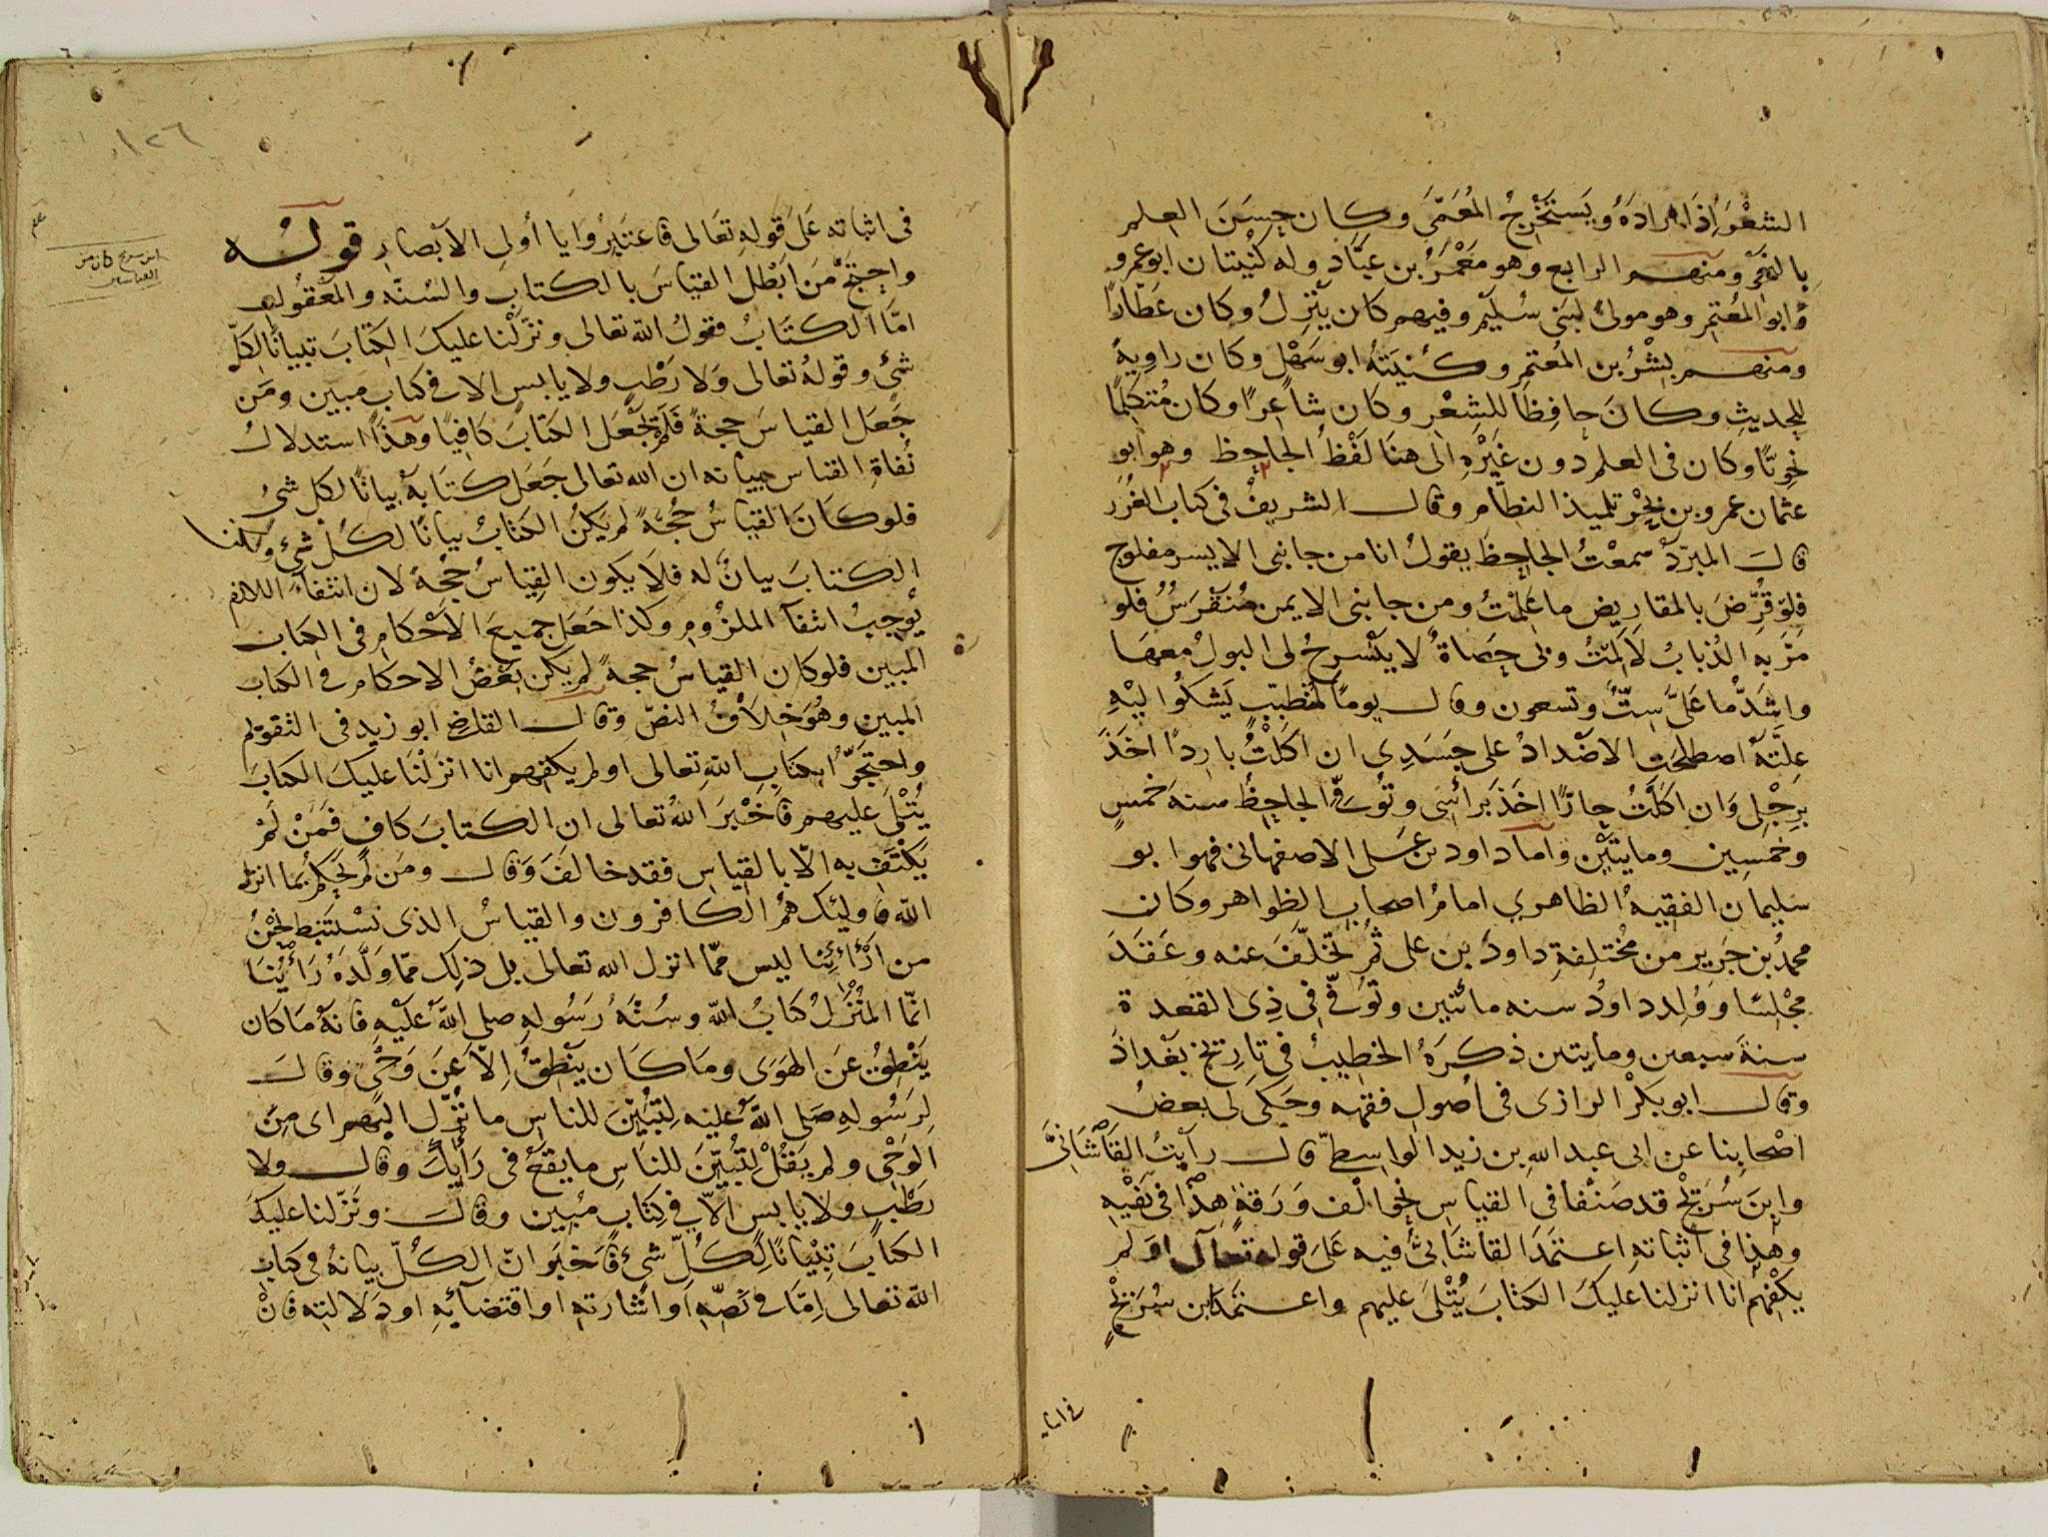 الشعْرَ إذَا ارادَهُ ويَستَخْرِجُ المُعَمَّى وكان حسَنَ العلم
بالنجْوِ ومنهم الرابع وهو مَعْمَرُ بن عبَّادٍ وله كُنْيتان ابو عمرو
وابو المُعْتمِرِ وهو مولىً لبَنى سُلَيْمٍ وفيهم كان يَنْزِلُ وكان عَطَّارًا
ومنهم بِشْرُ بن المُعتمِرِ وكُنيَتهُ ابو سَهْلٍ وكان راوِيةً
للحديثِ وكانَ حافِظًا للشِعْرِ وكان شاعِرًا وكان مُتكلِّمًا
نحويًّا وكان فى العلم دون غَيْرْهِ الى هنَا لَفْظُ الجاحِظِ وهو ابو
عثمان عمرو بن بحْرٍ تلميذ النظّام وقال الشريفُ فى كتاب الغُرَر
قال المبرّدُ سمعْتُ الجاحِظَ يقولُ انا من جانبى الايسر مفلوج
فلو قُرِّضَ بالمقاريض ما عَلِمْتُ ومن جانبى الايمن مُنَقْرَسٌ فلو
مَرَّ به الذُبابُ لَاَلِمْتُ وبى حصَاةٌ لا يَسْرحُ لى البولُ معها
واشدّ ما علَىَّ ستٌّ وتسعون وقال يومًا لمتطبّبٍ يَشكُوا اليْهِ
علّتَهُ اصطلحَتِ الاضْدادُ على جسَدِى ان اكَلْتُ باردًا اخَذَ
برِجْلِى وان اكلْتُ حارًّا اخذَ برأسى وتُوفِّى الجاحِظُ سنة خمسٍ
وخمسين ومايتَيْن وامّا داود بن على الاصفهانى فهو ابو
سليمان الفقيهُ الظاهرى امامُ اصحاب الظواهر وكان
محمدُ بن جَرير من مُختلِفةِ داودَ بن على ثُم تخلّفَ عنه وعَقَدَ
مجْلِسًا وَوُلِدَ داودُ سنه مائتين وتُوُفِّى فى ذِى القعدة
سنةَ سبعين ومايتين ذكرَهُ الخطيبُ فى تاريخ بَغْداذَ
وقال ابو بكْر الرازى فى اُصول فقهه وحَكى لى بعضُ
اصْحابنا عن ابى عبد الله بن زيد الواسطىّ قال رأيْتُ القَاشَانِىَّ
وابنَ سُرَيْجٍ قد صَنَّفا فى القياس نحو الْف وَرَقةٍ هذا فى نَفْيِه
وهذا فى اثباته اعتمَدَ القاشَانىُّ فيه عَلَى قوله تعالى اوَ لم
يَكْفِهِمْ انا انزلنا عليكَ الكتابَ يُتْلَى عليهم واعتمَد ابن سُرَيْجٍ
فى اثبا
١٢٦
فى اثباته عَلَى قولِهِ تعَالى فاعتَبِرُوا يا أولى الابْصارِ قولُه
واحتجَّ مَن ابطَل القياسَ بالكتابِ والسُنّه والمعْقُولِ
امّا الكتَابُ فقولُ الله تعالى ونزّلْنا عليكَ الكِتابَ تبيانًا لكلّ
شئٍ وقولهُ تعالى وَلا رَطْبٍ ولا يابس الا فى كتاب مبين ومَن
جَعَل القياسَ حجةً فلَم يجْعَل الكتَابَ كافيًا وهذا استدلالُ
نُفاةِ القياس بيانه ان الله تعالى جَعَل كتَابهُ بيانًا لكل شئٍ
فلو كانَ القياسُ حُجّةً لم يكُن الكتابُ بيانًا لكُل شئٍ ولكنّ
الكتابَ بيانٌ له فلا يكون القِياسُ حُجّةً لان انتفاءَ اللازم
يُوجبُ انتفآ الملزُومِ وكذا جعَل جميعَ الاحْكامِ فى الكتاب
المبين فلو كان القياسُ حجةً لم يكن بعْضُ الاحكام فى الكتاب
المبين وهُوَ خِلاَفُ النصّ وقال القاضى ابو زيد فى التقويم
واحتجّوا بكتابِ الله تعالى اولم يكفهم انا انزلْنَا عليكَ الكتابَ
يُتْلَى عليهم فاَخْبرَ اللهُ تعالى ان الكتابَ كافٍ فَمَنْ لَمْ
يَكْتَفِ به الّا بالقياس فقد خالفَ وَقال ومَن لم يَحكم بما انزل
الله فاوليئك همُ الكافرون والقياسُ الذى نسْتَنبِط نحْنُ
من آرائِنا ليس ممّا انزل الله تعالى بل ذلِك ممّا ولّدَهُ رَأيُنَا
انّما المُنْزَلُ كتابُ الله وسُنّةُ رَسُولهِ صلى اللهُ عَليْهِ فانهُ مَا كان
يَنْطِقُ عَنِ الهَوَى ومَا كَان يَنْطِقُ اِلّا عَن وَحْىٍ وقال
لرَسُولهِ صَلى الله عليه لِتبُيّن للناس ما نُزّل اليهم اى مِنَ
الوَحْىِ ولم يقُلْ لِتُبيّنَ للناسِ ما يقَعُ فى رَأيِكَ وقال ولا
رَطْبٍ ولا يابسٍ الّا فى كِتابٍ مُبين وقال ونَزّلنا عليكَ
الكتابَ تِبْيانًا لكُلّ شئ فاَخبَر انّ الكُلّ بيانهُ فى كتاب
الله تعالى اِمّا فى نَصّهِ اَو اشارته او اقتضآئِهِ او دَلالتِه فانْ
ابن سريج كان من